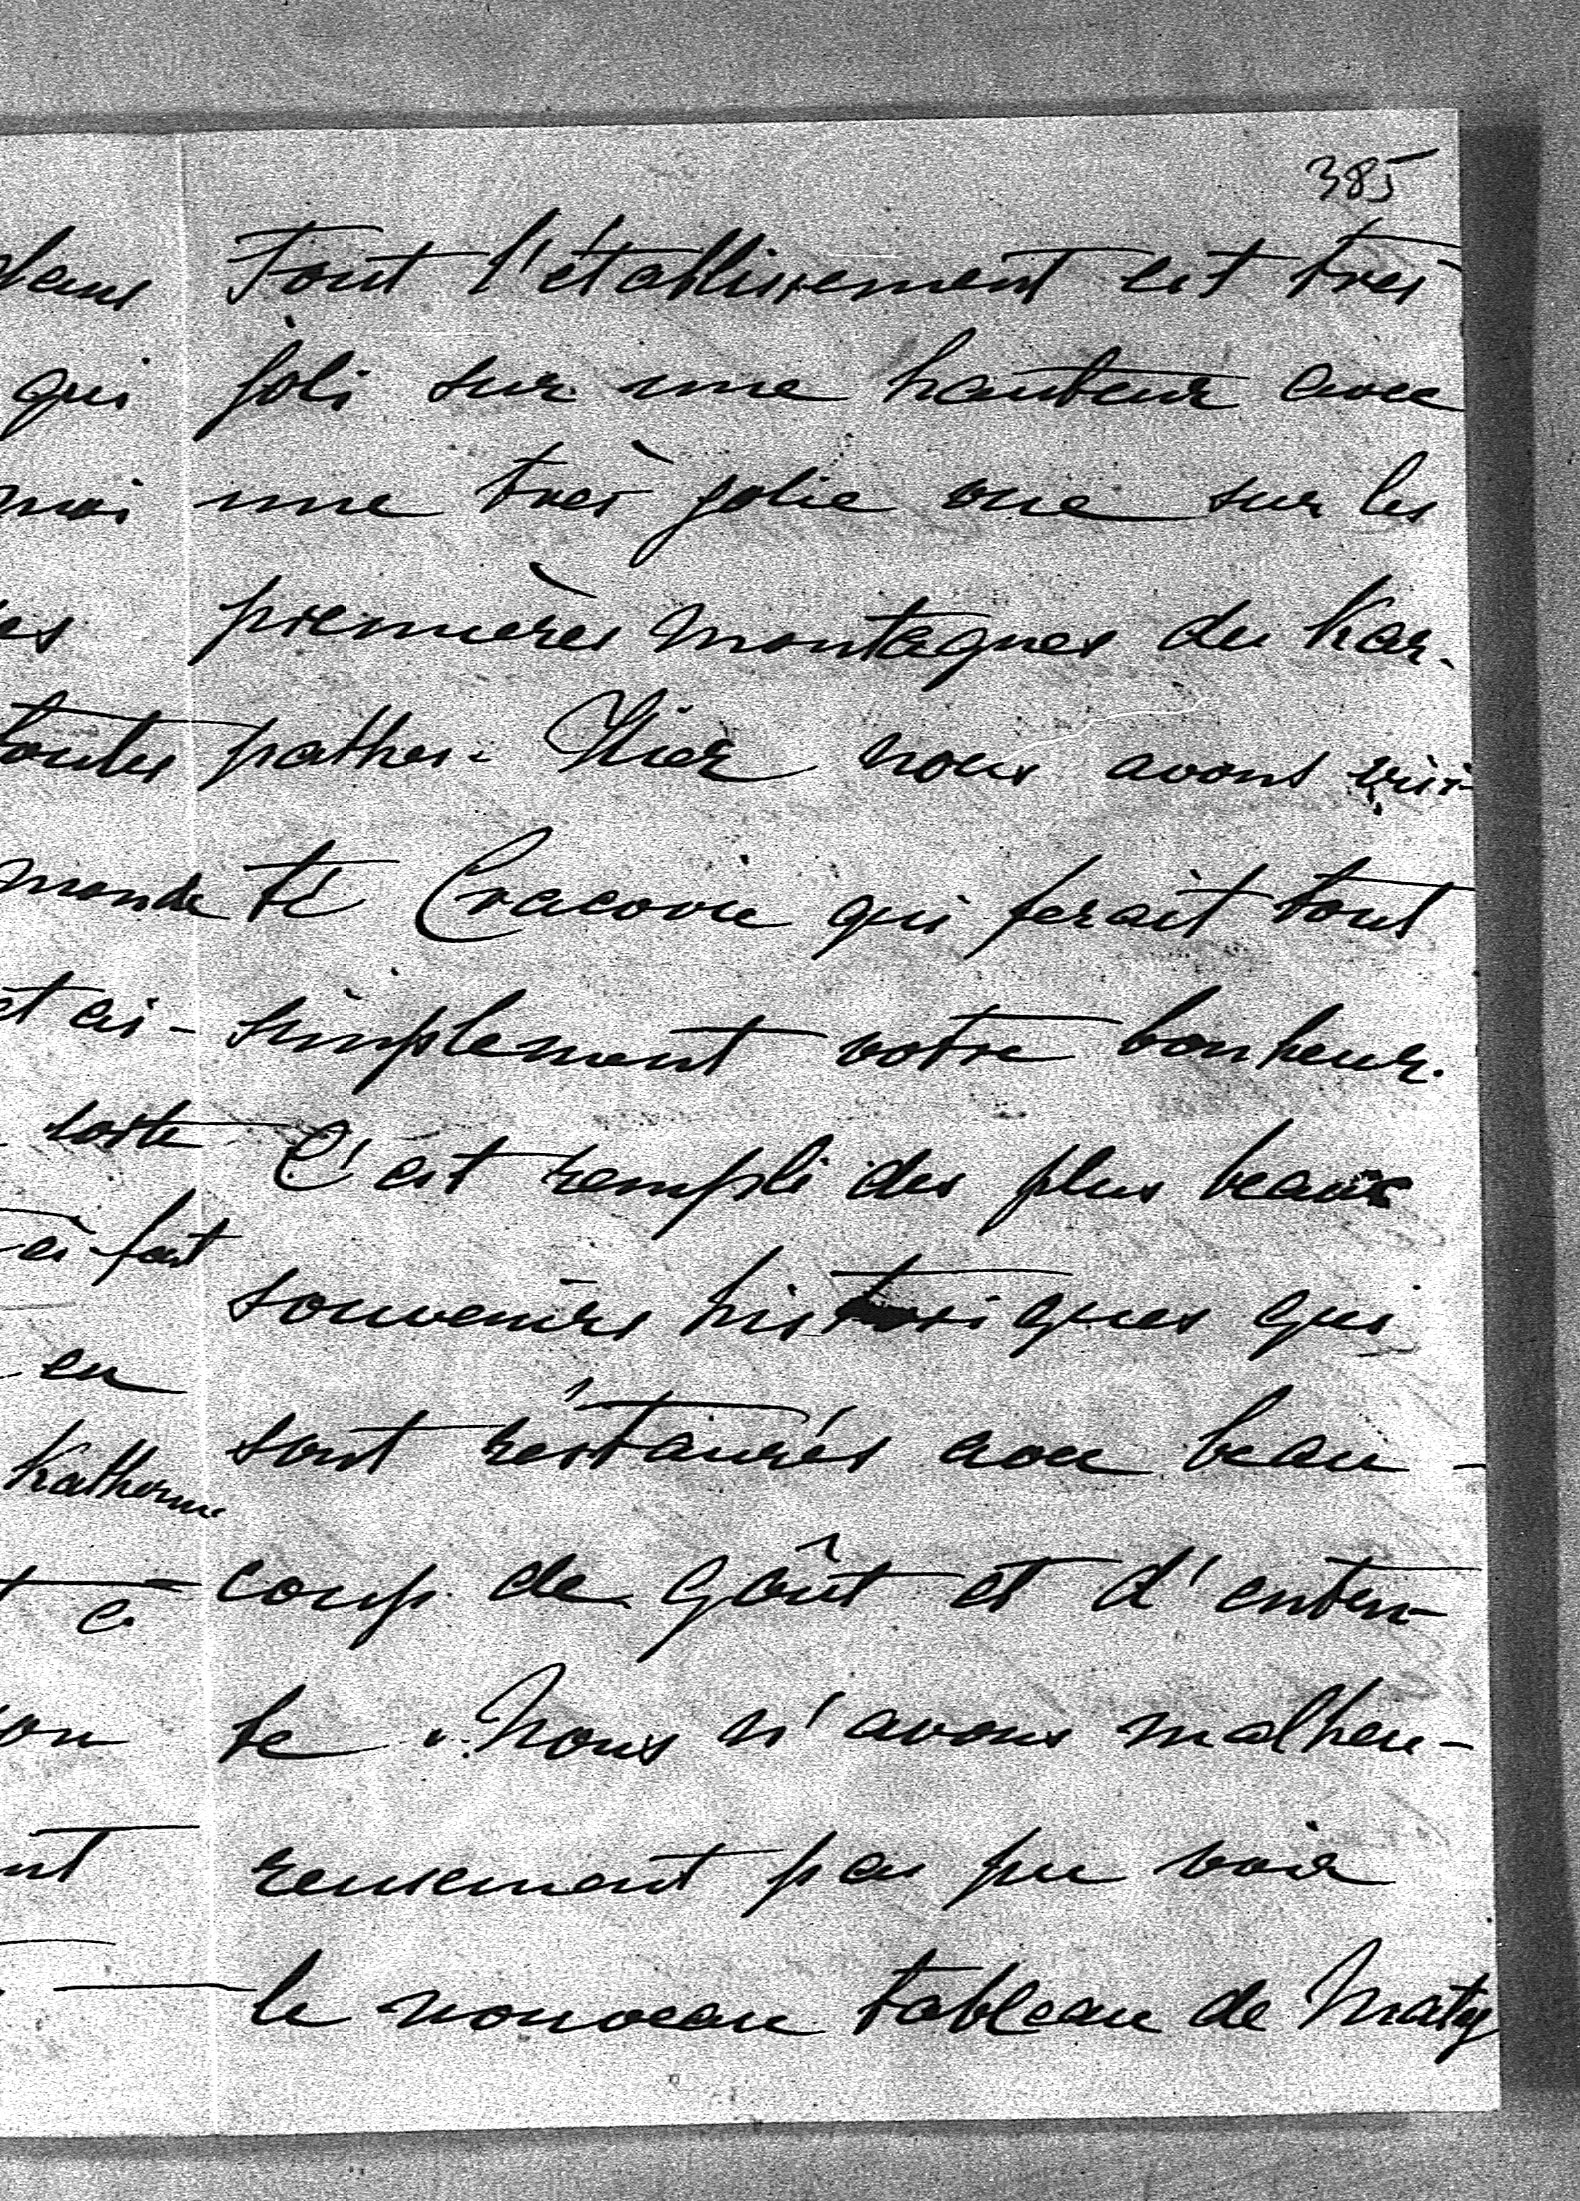 385
Tout l'établissement est très
joli sur une hauteur avec
une très jolie vue sur les
premières montagnes du Kar-
pathes. Hier nous avons visi-
té Cracovie qui ferait tout
simplement votre bonheur.
C'est rempli des plus beaux
souvenirs historiques qui
sont réstaurés avec beau-
coup de goût et d'enten-
te. Nous n'avons malheu-
reusement pas pu voir
le nouveau tableau de Maty
dans
qui
moi
es
toutes
monde
et ai-
sorte
-à-fait
en
Katherine
on
nt